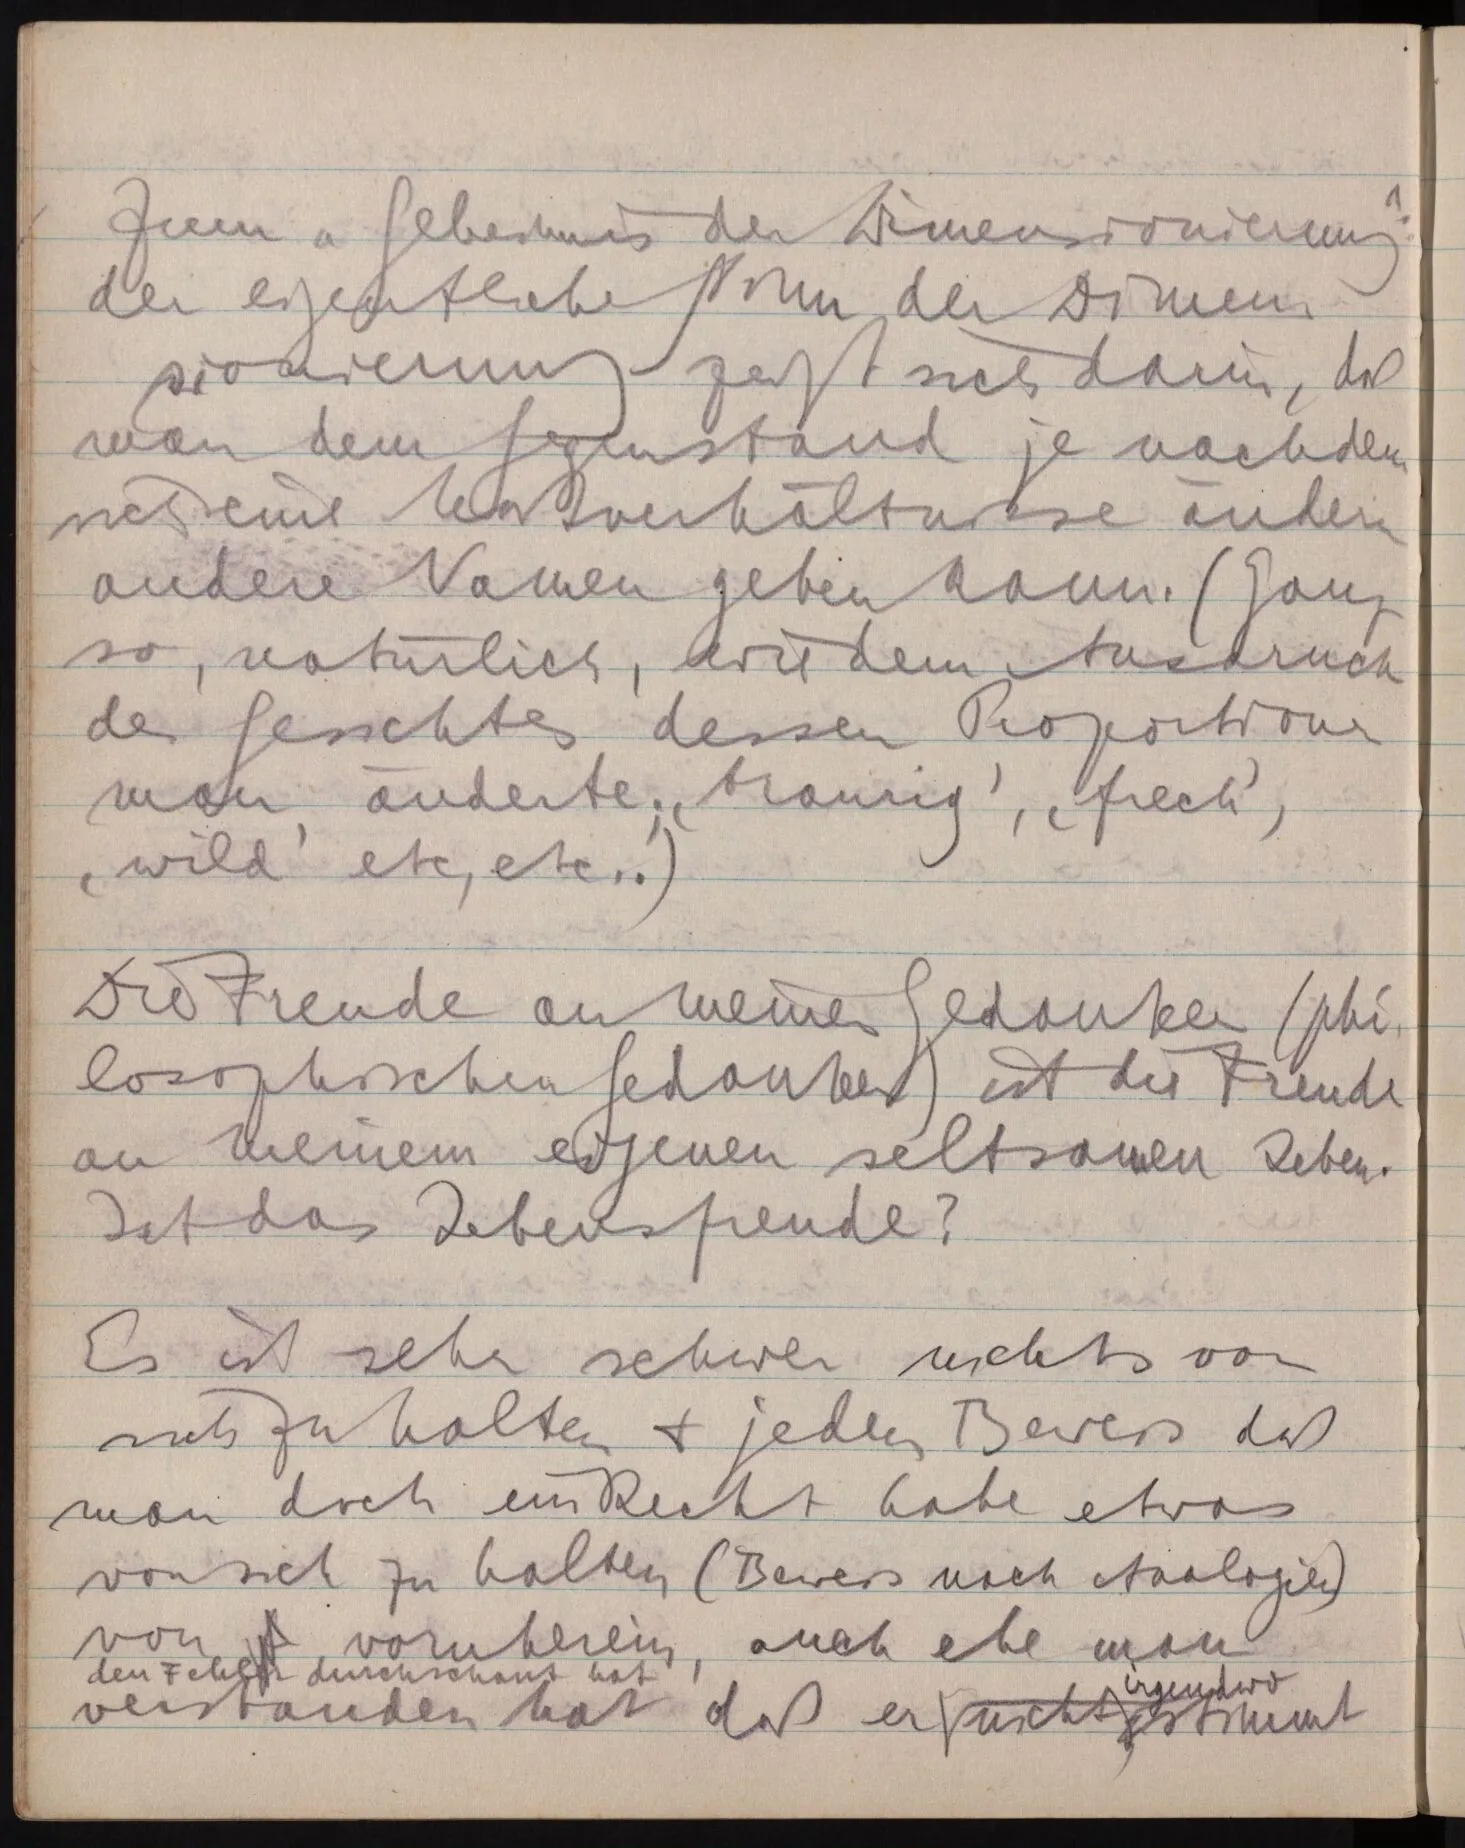 Zum „Geheimnis der Dimensionierung“:
der eigentliche Sinn der Dimen
sionierung zeigt sich darin, daß
man dem Gegenstand je nachdem
sich seine Maßverhältnisse ändern
andere Namen geben kann. (Ganz
so, natürlich, wie dem Ausdruck
des Gesichtes dessen Proportionen
man änderte; ‚traurig‘, ‚frech‘,
‚wild‘ etc, etc..)
Die Freude an meinen Gedanken (phi
losophischen Gedanken) ist die Freude
an meinem eigenen seltsamen Leben.
Ist das Lebensfreude?
Es ist sehr schwer nichts von
sich zu halten + jeden Beweis daß
man doch ein Recht habe etwas
von sich zu halten (Beweis nach Analogien)
von vornherein, auch ehe man
den Fehler durchschaut hat
irgendwo
verstanden hat daß er nicht stimmt